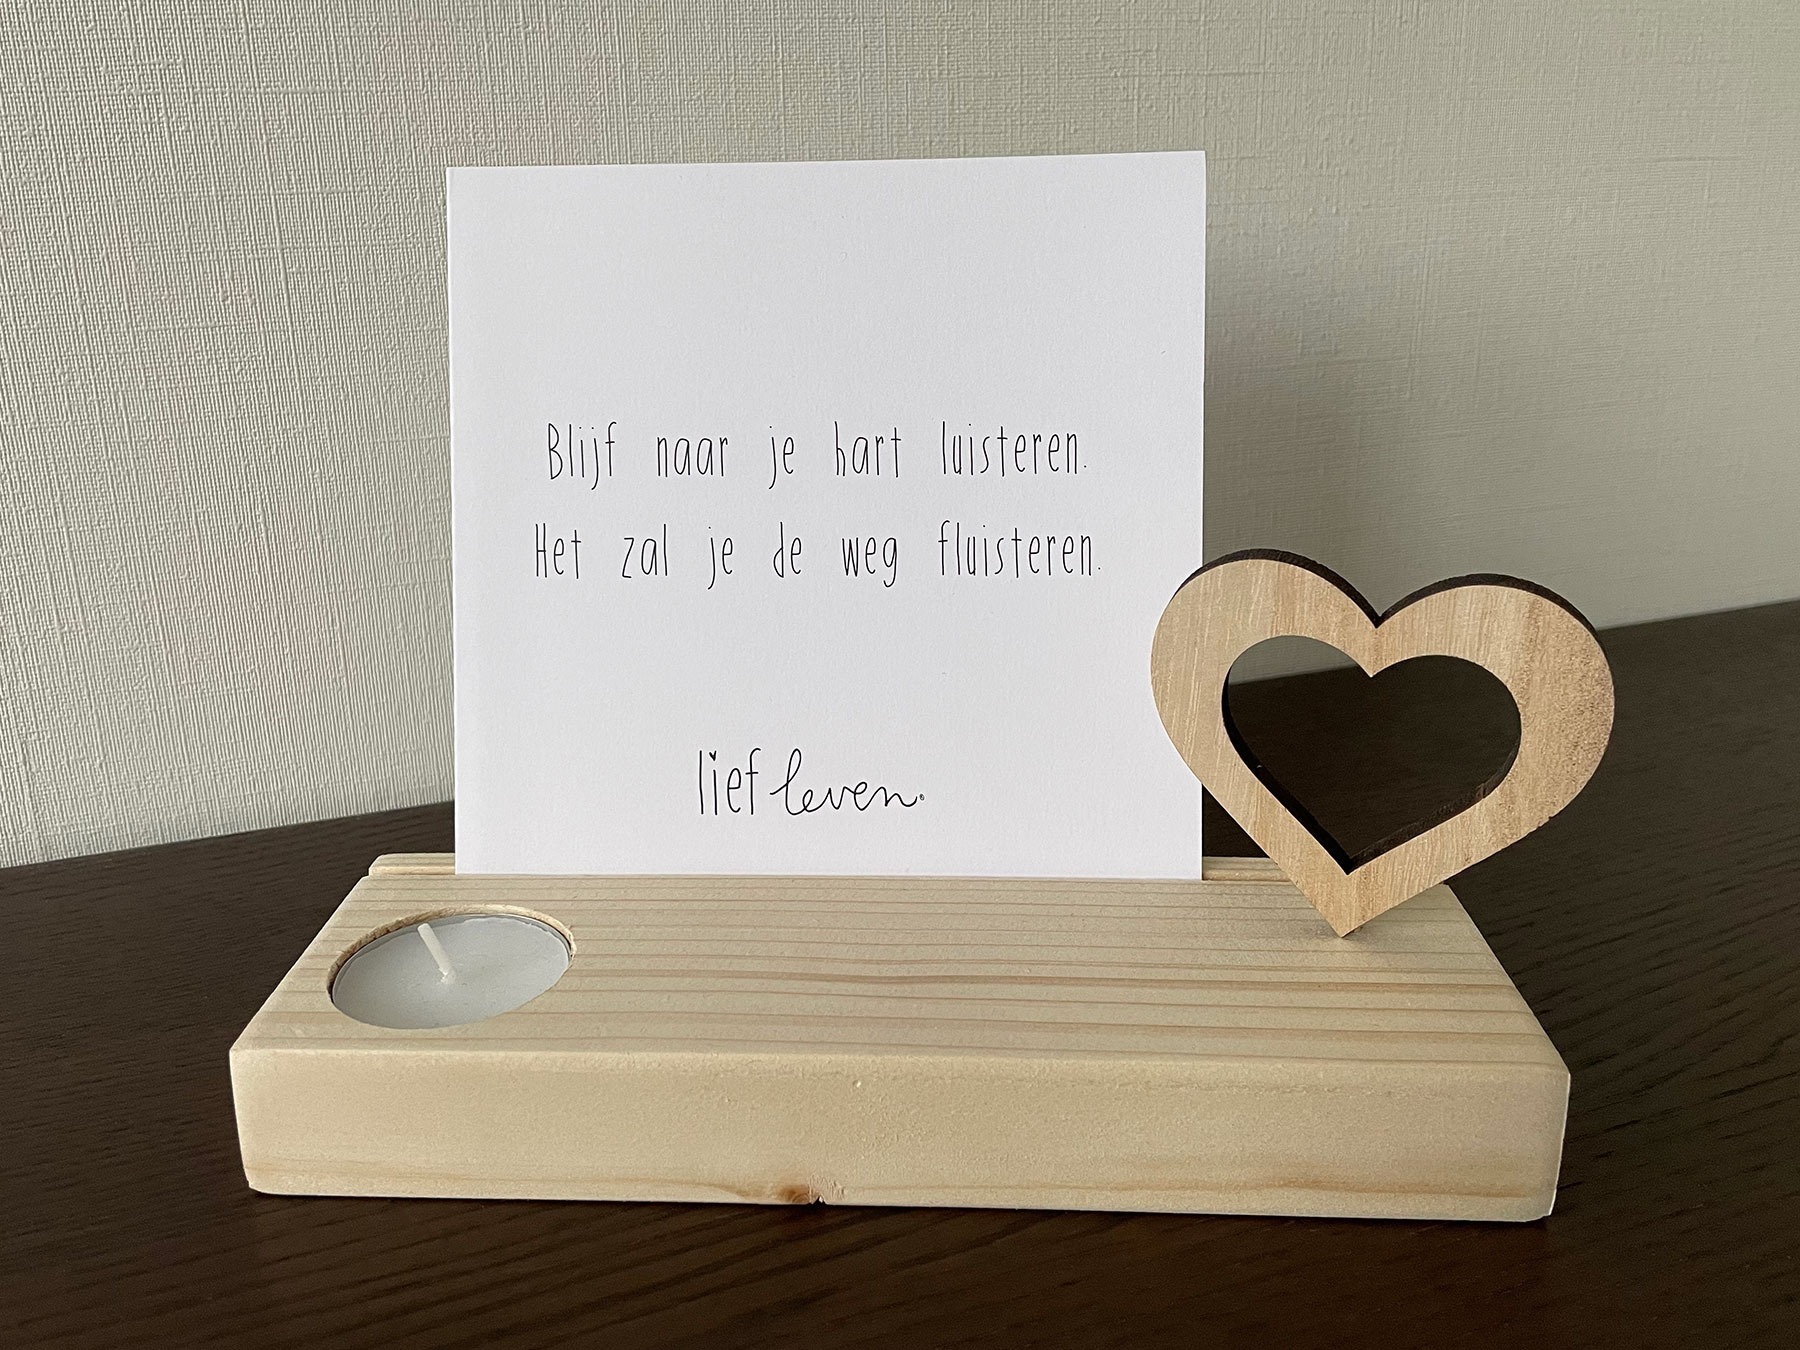 Blijf naar je hart luisteren.
Het zal je de weg fluisteren.
lief leven®